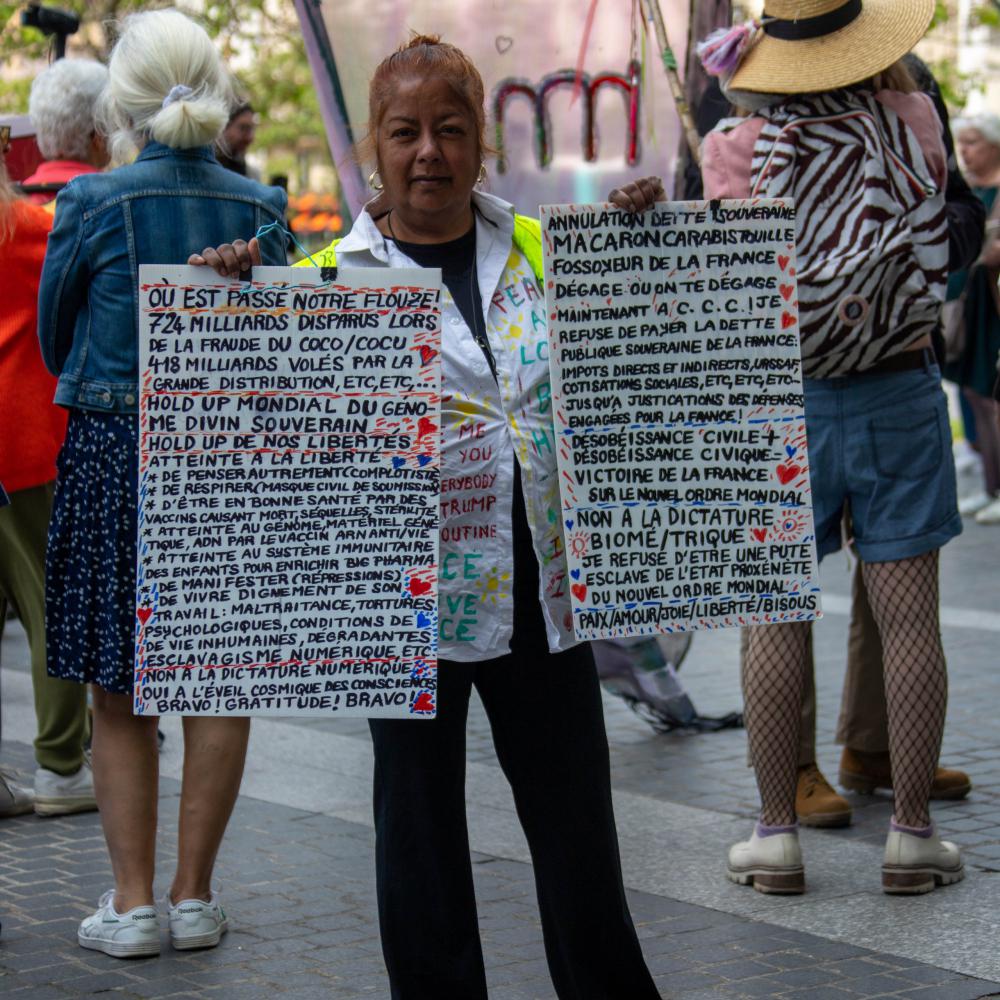 md
OÙ EST PASSÉ NOTRE FLOUZE!
724 MILLIARDS DISPARUS LORS
DE LA FRAUDE DU COCO/COCU
418 MILLIARDS VOLÉS PAR LA
GRANDE DISTRIBUTION, ETC, ETC,...
HOLD UP MONDIAL DU GENO-
ME DIVIN SOUVERAIN
HOLD UP DE NOS LIBERTÉS
ATTEINTE A LA LIBERTÉ
* DE PENSER AUTREMENT (COMPLOTISTE
* DE RESPIRER (MASQUE CIVIL DE SOUMISSION
* D'ÊTRE EN BONNE SANTÉ PAR DES
VACCINS CAUSANT MORT, SÉQUELLES, STÉRILITÉ
* ATTEINTE AU GÉNOME, MATÉRIEL GÉNÉ
TIQUE, ADN PAR LE VACCIN ARN ANTI/VIE
* ATTEINTE AU SYSTÈME IMMUNITAIRE
DES ENFANTS POUR ENRICHIR BIG PHARMA
* DE MANIFESTER (RÉPRESSIONS)
* DE VIVRE DIGNEMENT DE SON
TRAVAIL: MALTRAITANCE, TORTURES
PSYCHOLOGIQUES, CONDITIONS DE
DE VIE INHUMAINES, DÉGRADANTES
ESCLAVAGISME NUMERIQUE, ETC
NON A LA DICTATURE NUMÉRIQUE
OUI A L'ÉVEIL COSMIQUE DES CONSCIENCES
BRAVO! GRATITUDE! BRAVO!
ME
YOU
ERYBODY
TRUMP
OUTINE
CE
VE
CE
ANNULATION DETTE SOUVERAINE
MACARONCARABISTOUILLE
FOSSOYEUR DE LA FRANCE
DÉGAGE OU ON TE DÉGAGE
MAINTENANT A C.C.C.! JE
REFUSE DE PAYER LA DETTE
PUBLIQUE SOUVERAINE DE LA FRANCE:
IMPOTS DIRECTS ET INDIRECTS, URSSAF,
COTISATIONS SOCIALES, ETC, ETC, ETC...
JUSQU'A JUSTICATIONS DES DÉPENSES
ENGAGÉES POUR LA FRANCE!
DÉSOBÉISSANCE CIVILE +
DÉSOBÉISSANCE CIVIQUE=
VICTOIRE DE LA FRANCE
SUR LE NOUVEL ORDRE MONDIAL
NON A LA DICTATURE
BIOMÉ/TRIQUE
JE REFUSE D'ETRE UNE PUTE
ESCLAVE DE L'ETAT PROXÉNÈTE
DU NOUVEL ORDRE MONDIAL
PAIX/AMOUR/JOIE/LIBERTÉ/BISOUS
Reebok
Reebok